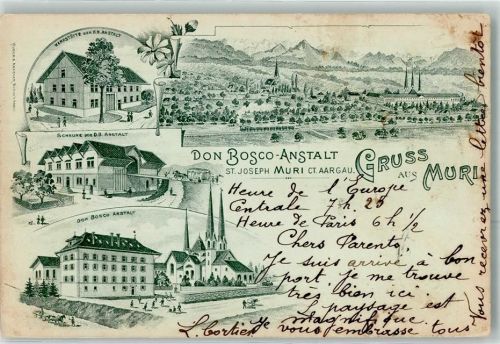 WERKSTÄTTE DON B. ANSTALT
SCHEUNE DON B. ANSTALT
DON BOSCO ANSTALT
DON BOSCO-ANSTALT
ST. JOSEPH MURI CT. AARGAU.
GRUSS
AUS
MURI
Heure de l'Europe
Centrale 7h 28
Heure de Paris 6h ½
Chers Parents,
Je suis arrivé à bon
port je me trouve
très bien ici
Le paysage est
magnifique.
Je vous embrasse tous
L. Cortier
Vous recevrez une lettre bientôt